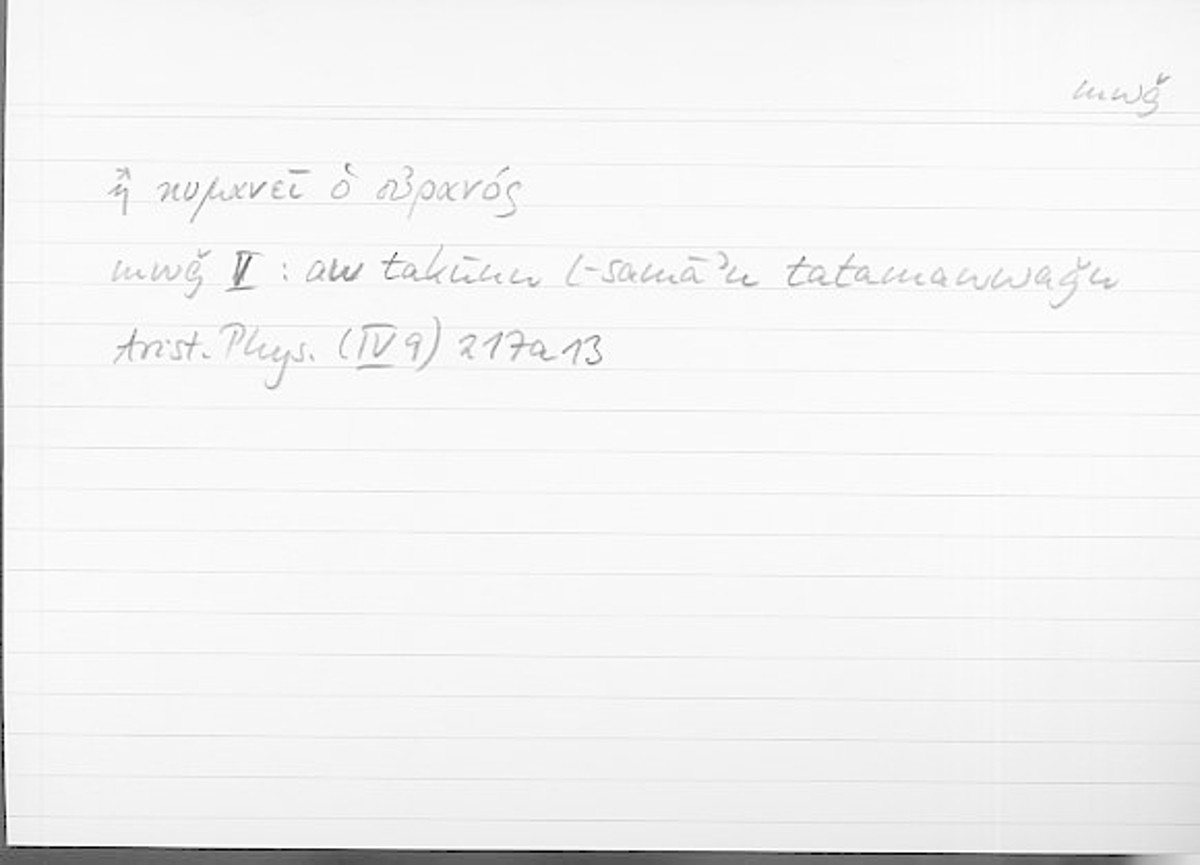 mwǧ
ἢ κυμανεῖ ὁ οὐρανός
mwǧ V : aw takūnu l-samāʾu tatamawwaǧu
Arist. Phys. (IV 9) 217a13